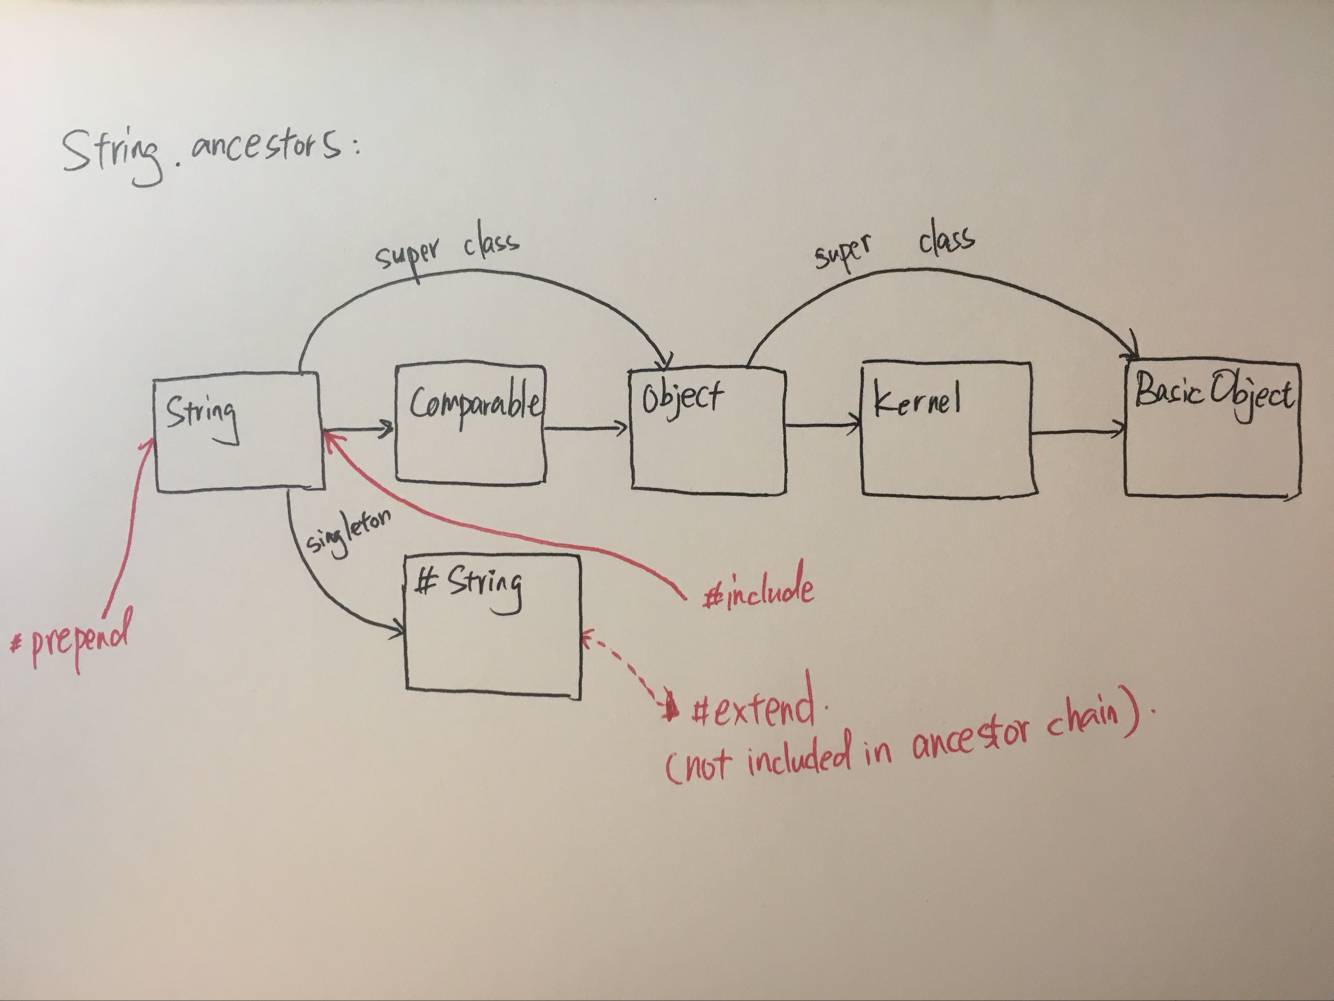 String.ancestors:
super class
super class
String
Comparable
Object
Kernel
Basic Object
singleton
# String
#include
#prepend
#extend.
(not included in ancestor chain).